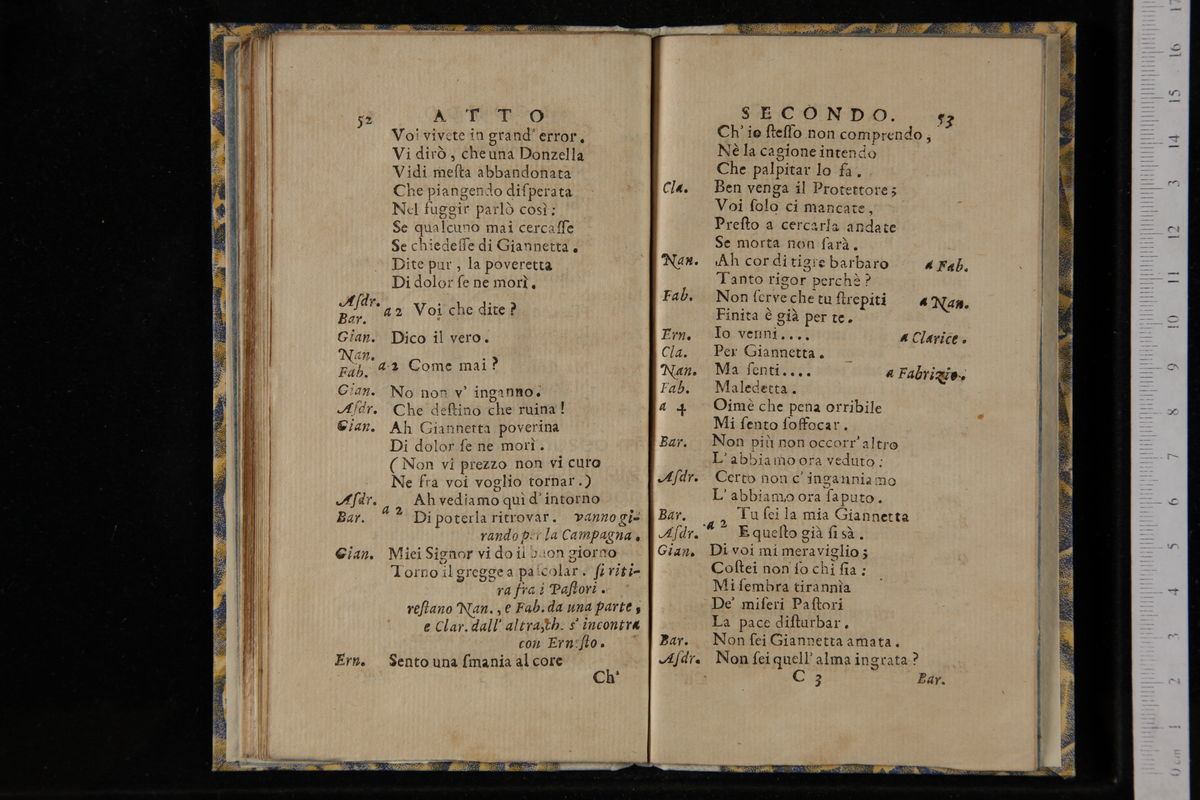 52 ATTO
Voi vivete in grand' error.
Vi dirò, che una Donzella
Vidi meſta abbandonata
Che piangendo diſperata
Nel fuggir parlò così:
Se qualcuno mai cercaſſe
Se chiedeſſe di Giannetta.
Dite pur, la poveretta
Di dolor ſe ne morì.
Aſdr.
Bar. a 2 Voi che dite?
Gian. Dico il vero.
Nan.
Fab. a 2 Come mai?
Gian. No non v' inganno.
Aſdr. Che deſtino che ruina!
Gian. Ah Giannetta poverina
Di dolor ſe ne morì.
(Non vi prezzo non vi curo
Ne fra voi voglio tornar.)
Aſdr. Ah vediamo quì d' intorno
Bar. a 2 Di poterla ritrovar. vanno gi-
rando per la Campagna.
Gian. Miei Signor vi do il buon giorno
Torno il gregge a paſcolar. ſi riti-
ra fra i Paſtori.
reſtano Nan., e Fab. da una parte,
e Clar. dall' altra, ch. s' incontra
con Erneſto.
Ern. Sento una ſmania al core
Ch'
SECONDO. 53
Ch' io ſteſſo non comprendo,
Nè la cagione intendo
Che palpitar lo fa.
Cla. Ben venga il Protettore;
Voi ſolo ci mancate,
Preſto a cercarla andate
Se morta non ſarà.
Nan. Ah cor di tigre barbaro a Fab.
Tanto rigor perchè?
Fab. Non ſerve che tu ſtrepiti a Nan.
Finita è già per te.
Ern. Io venni.... a Clarice.
Cla. Per Giannetta.
Nan. Ma ſenti.... a Fabrizio.
Fab. Maledetta.
a 4 Oimè che pena orribile
Mi ſento ſoffocar.
Bar. Non più non occorr' altro
L' abbiamo ora veduto:
Aſdr. Certo non c' inganniamo
L' abbiamo ora ſaputo.
Bar. Tu ſei la mia Giannetta
Aſdr. a 2 E queſto già ſi sà.
Gian. Di voi mi meraviglio;
Coſtei non ſo chi ſia:
Mi ſembra tirannìa
De' miſeri Paſtori
La pace diſturbar.
Bar. Non ſei Giannetta amata.
Aſdr. Non ſei quell' alma ingrata?
C 3 Bar.
0 cm 1 2 3 4 5 6 7 8 9 10 11 12 13 14 15 16 17